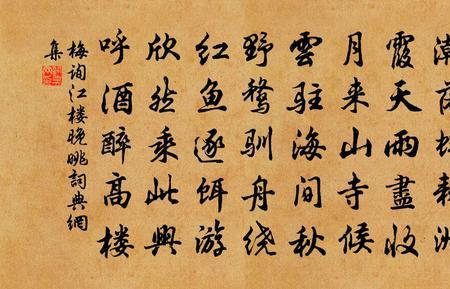 霞天雨盡收
月来山寺候
雲駐海间秋
野鹜驯舟绕
红鱼逐饵游
欣然乘此興
呼酒醉高楼
梅询江楼晚眺詞典網
集